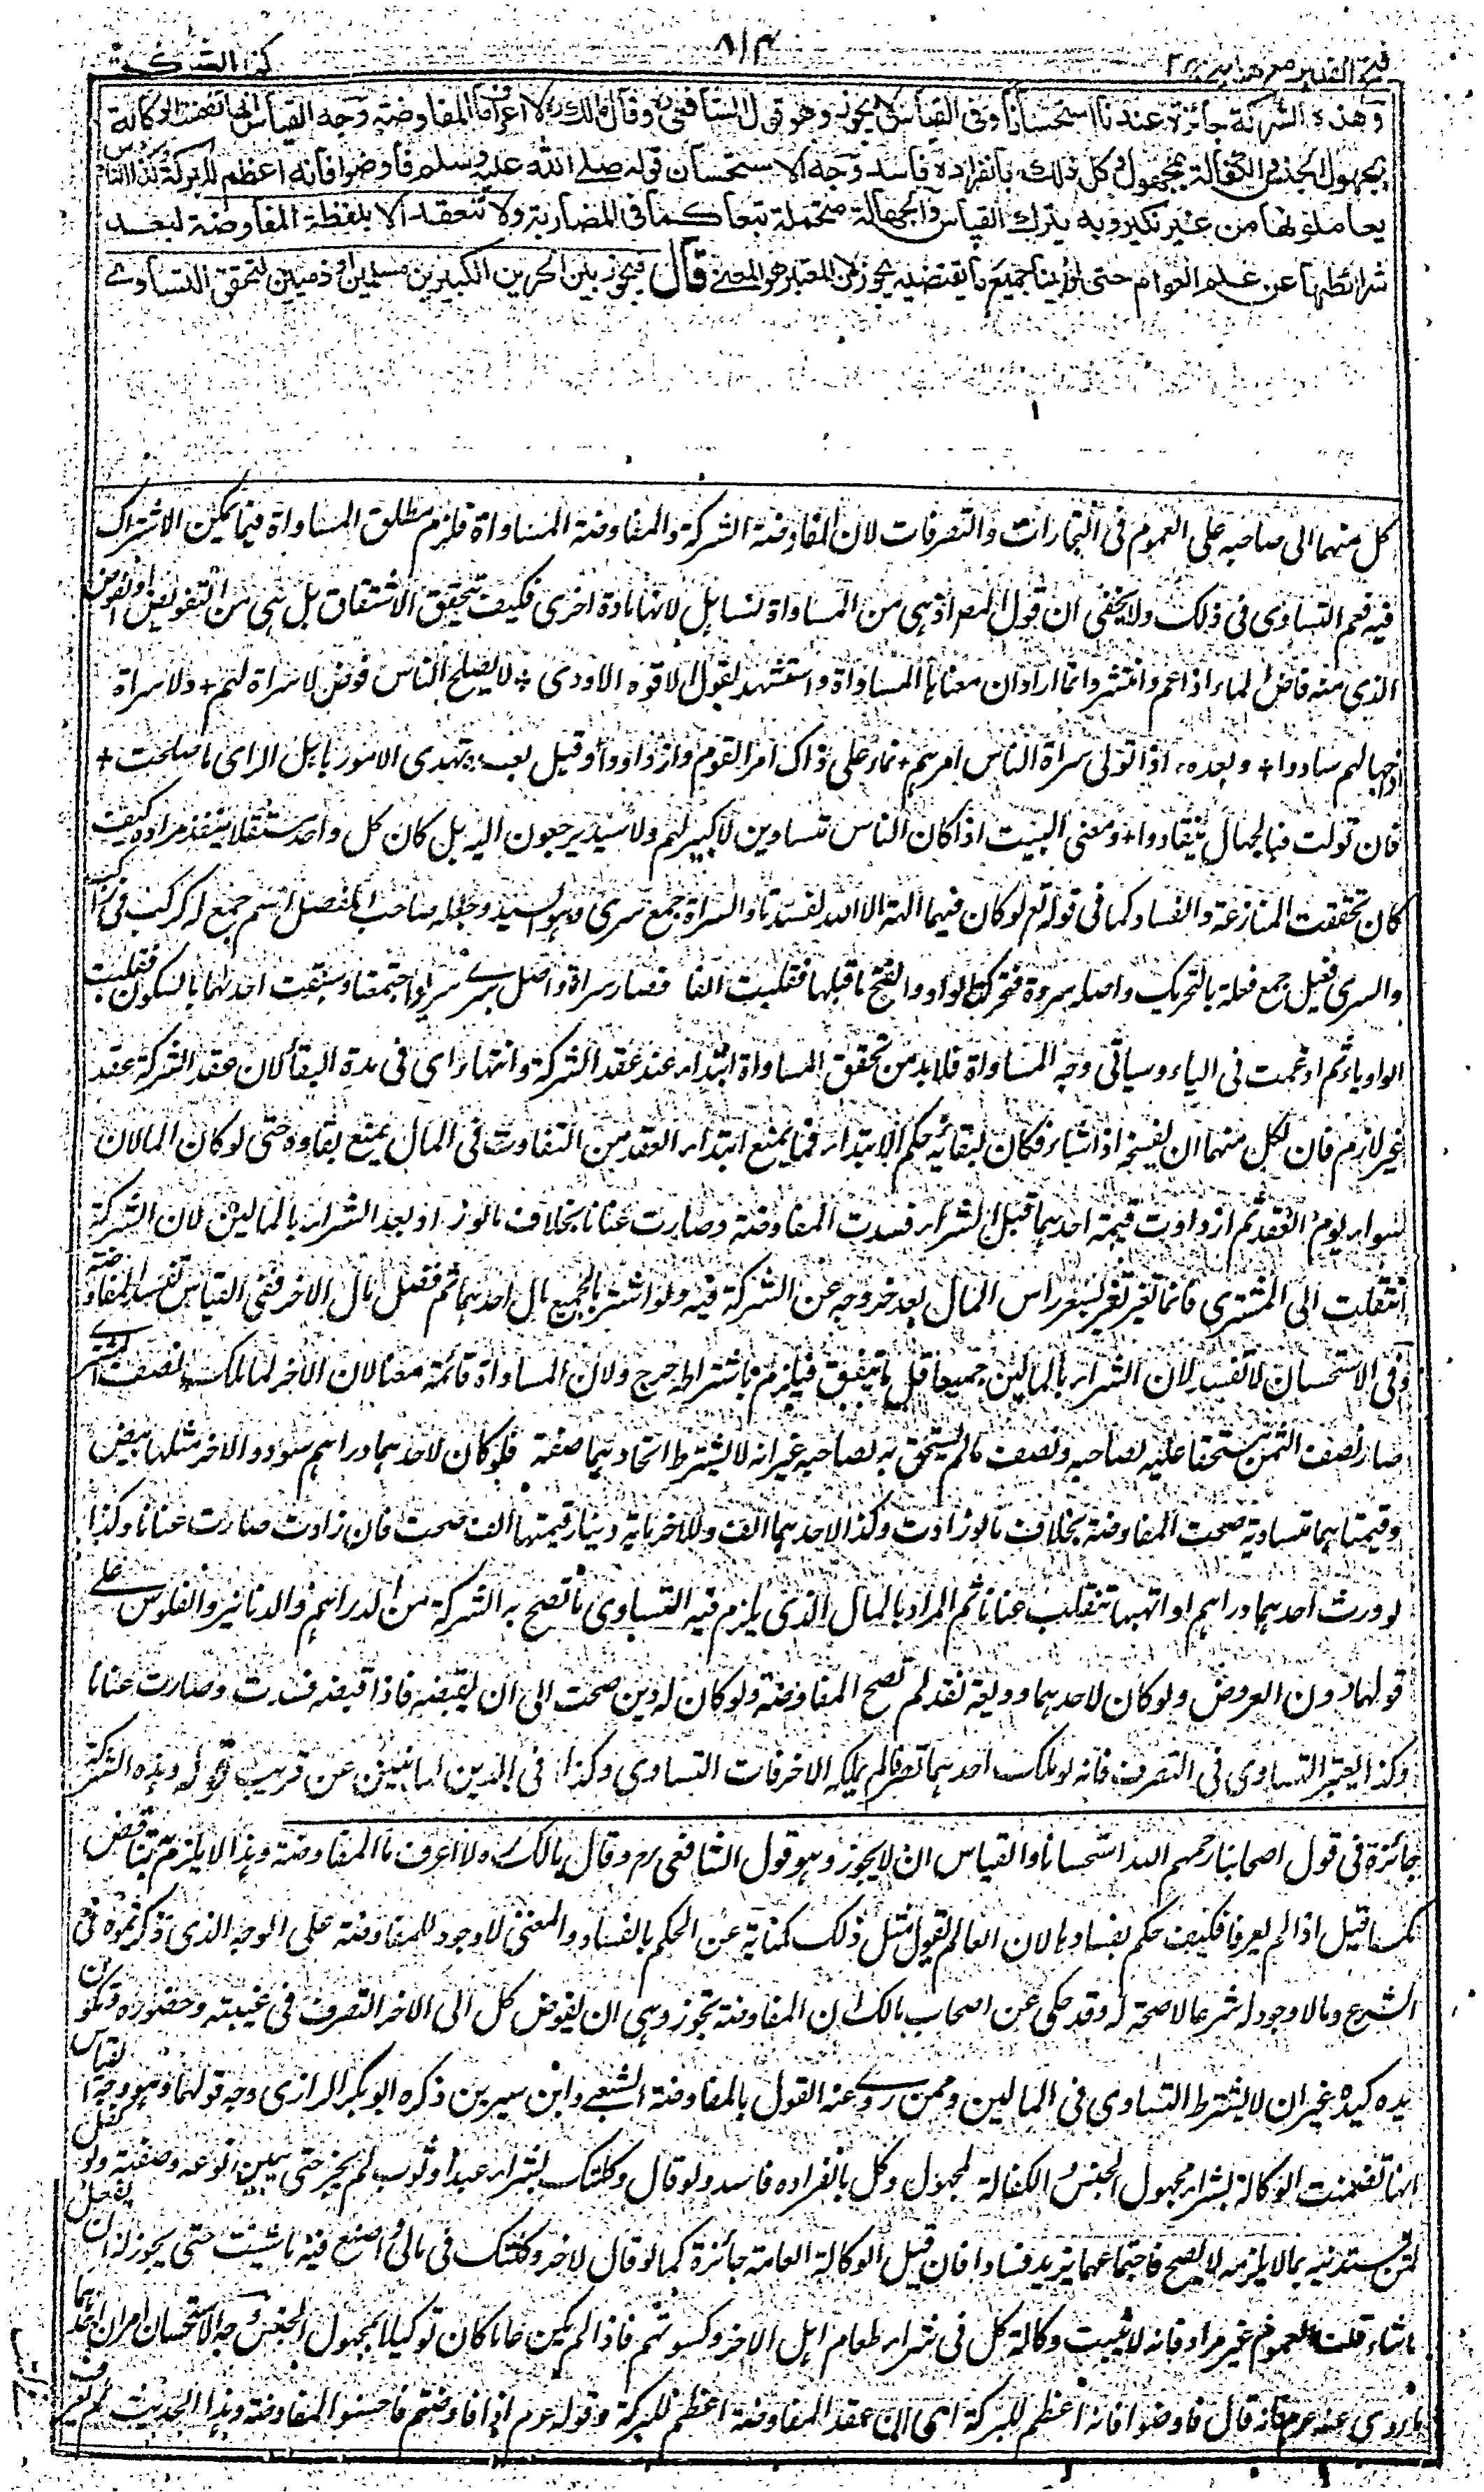 فتح القدير مع هداية ج ٢
٨١٣
كتاب الشركة
وهذه الشركة جائزة عندنا استحسانا وفى القياس لا يجوز وهو قول الشافعى وقال مالك لا اعرف ما المفاوضة وجه القياس انها تضمنت الوكالة
بمجهول الجنس والكفالة بمجهول وكل ذلك بانفراده فاسد وجه الاستحسان قوله صلى الله عليه وسلم فاوضوا فانه اعظم للبركة وكذا الناس
يعاملونها من غير نكير وبه يترك القياس والجهالة متحملة تبعا كما فى المضاربة ولا تنعقد الا بلفظة المفاوضة لبعد
شرائطها عن علم العوام حتى لو بينا جميع ما يقتضيه يجوز لان المعتبر هو المعنى قال فيجوز بين الحرين الكبيرين مسلمين او ذميين لتحقق التساوى
كل منهما الى صاحبه على العموم فى التجارات والتصرفات لان المفاوضة الشركة والمفاوضة المساواة فلزم مطلق المساواة فيما يمكن الاشتراك
فيه فعم التساوى فى ذلك ولا يخفى ان قول المص اذ هى من المساواة تساهل لانها مادة اخرى فكيف يتحقق الاشتقاق بل هى من التفويض او الفوض
الذى منه فاض الماء اذا عم وانتشر وانما اراد ان معناها المساواة واستشهد بقول الافوه الاودى + لا يصلح الناس فوضى لا سراة لهم + ولا سراة
اذا جهالهم سادوا + وبعده اذا تولى سراة الناس امرهم + نما على ذاك امر القوم وازدادوا وقيل بعده تهدى الامور باهل الراى ما صلحت +
فان تولت فبالجهال ينقادوا + ومعنى البيت اذا كان الناس متساوين لا كبير لهم ولا سيد يرجعون اليه بل كان كل واحد مستقلا ينفذ مراده كيف
كان تحققت المنازعة والفساد كما فى قوله تع لو كان فيهما الهة الا الله لفسدتا والسراة جمع سرى وهو السيد وجعله صاحب المفصل اسم جمع له كركب فى راكب
والسرى فعيل جمع فعلة بالتحريك واصله سروة فتحركت الواو وانفتح ما قبلها فقلبت الفا فصار سراة واصل سرى سريو اجتمعتا وسبقت احدهما بالسكون فقلبت
الواو ياء ثم ادغمت فى الياء وسياتى وجه المساواة فلا بد من تحقق المساواة ابتداء عند عقد الشركة وانتهاء اى فى مدة البقاء لان عقد الشركة عقد
غير لازم فان لكل منهما ان يفسخه اذا شاء فكان لبقائه حكم الابتداء فما يمنع ابتداء العقد من التفاوت فى المال يمنع بقاءه حتى لو كان المالان
سواء يوم العقد ثم ازدادت قيمة احدهما قبل الشراء فسدت المفاوضة وصارت عنانا بخلاف ما لو زاد بعد الشراء بالمالين لان الشركة
انتقلت الى المشترى فانما تغير سعر راس المال بعد خروجه عن الشركة فيه ولو اشتريا جميع مال احدهما ثم فضل مال الاخر ففى القياس تفسد المفاوضة
وفى الاستحسان لا تفسد لان الشراء بالمالين جميعا قل ما يتفق فيلزم باشتراطه حرج ولان المساواة قائمة معنا لان الاخر لما ملك نصف المشترى
صار نصف الثمن مستحقا عليه لصاحبه ونصف ما لم يستحق به لصاحبه غير انه لا يشترط اتحادهما صفة فلو كان لاحدهما دراهم سود وللاخر مثلها بيض
وقيمتاهما متساوية صحت المفاوضة بخلاف ما لو زادت وكذا لاحدهما الف وللاخر مائة دينار قيمتها الف صحت فان زادت صارت عنانا وكذا
لو ورث احدهما دراهم او اتهبها تنقلب عنانا ثم المراد بالمال الذى يلزم فيه التساوى ما تصح به الشركة من الدراهم والدنانير والفلوس على
قولهما دون العروض ولو كان لاحدهما وديعة نقد لم تصح المفاوضة ولو كان له دين صحت الى ان يقبضه فاذا قبضه فسدت وصارت عنانا
وكذا يعتبر التساوى فى التصرف فانه لو ملك احدهما تصرفا لم يملكه الاخر فات التساوى وكذا فى الدين لما نبين عن قريب قوله وهذه الشركة
جائزة فى قول اصحابنا رحمهم الله استحسانا والقياس ان لا يجوز وهو قول الشافعى رح وقال مالك ولا اعرف ما المفاوضة وهذا لا يلزم تناقض
كما قيل اذا لم يعرفها فكيف حكم بفسادها لان العالم يقول مثل ذلك كناية عن الحكم بالفساد والمعنى لا وجود للمفاوضة على الوجه الذى ذكرتموه فى
الشرع وما لا وجود له شرعا لا صحة له وقد حكى عن اصحاب مالك ان المفاوضة تجوز وهى ان يفوض كل الى الاخر التصرف فى غيبته وحضوره وتكون
يده كيده غير ان لا يشترط التساوى فى المالين وممن روى عنه القول بالمفاوضة الشعبى وابن سيرين ذكره ابو بكر الرازى وجه قولهما وهو وجه القياس
انها تضمنت الوكالة بشراء مجهول الجنس والكفالة لمجهول وكل بانفراده فاسد ولو قال وكلتك بشراء عبد او ثوب لم يجز حتى يبين نوعه وصفته ولو كفل
لمن يستدينه بما لا يلزمه لا يصح فاجتماعهما يزيد فسادا فان قيل الوكالة العامة جائزة كما لو قال لاخر وكلتك فى مالى اصنع فيه ما شئت حتى يجوز له ان يفعل
ما شاء قلت العموم غير مراد فانه لا تثبت وكالة كل فى شراء طعام اهل الاخر وكسوتهم فاذا لم يكن عاما كان توكيلا بمجهول الجنس وجه الاستحسان امران احدهما
ما روى عنه عم انه قال فاوضوا فانه اعظم للبركة اى ان عقد المفاوضة اعظم للبركة وقوله عم اذا فاوضتم فاحسنوا المفاوضة وهذا الحديث لم يعرف